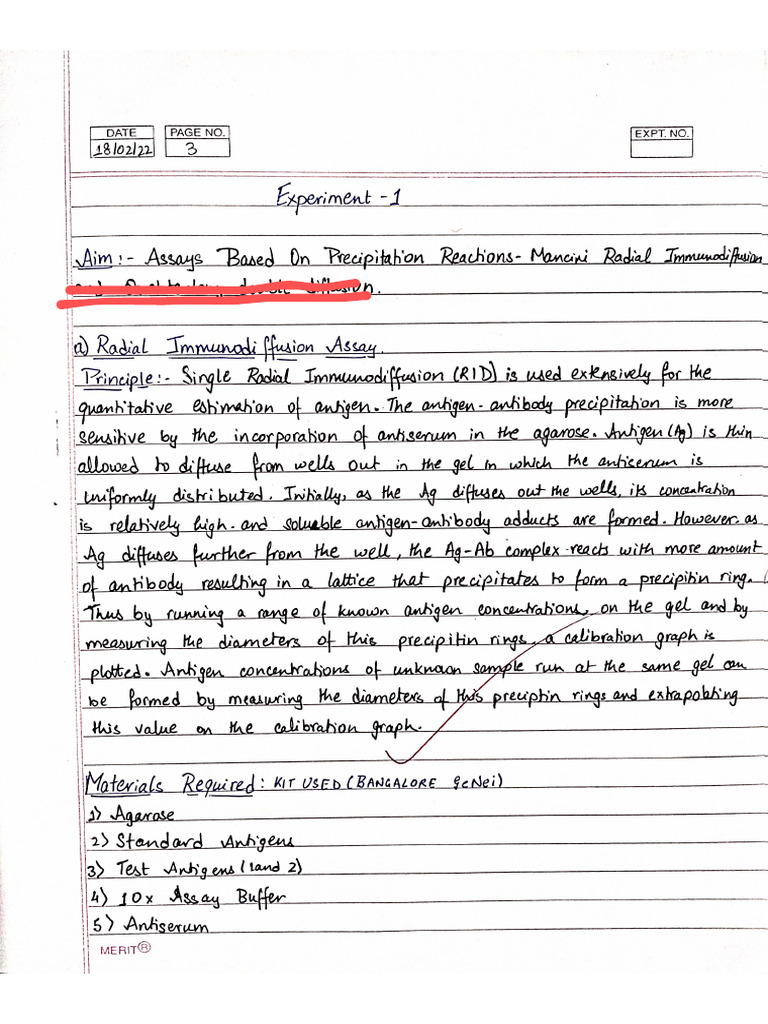 DATE
18/02/22
PAGE NO.
3
EXPT. NO.
Experiment - 1
Aim :- Assays Based On Precipitation Reactions- Mancini Radial Immunodiffusion
a) Radial Immunodiffusion Assay.
Principle:- Single Radial Immunodiffusion (RID) is used extensively for the
quantitative estimation of antigen. The antigen-antibody precipitation is more
sensitive by the incorporation of antiserum in the agarose. Antigen (Ag) is thin
allowed to diffuse from wells out in the gel in which the antiserum is
uniformly distributed. Initially, as the Ag diffuses out the wells, its concentration
is relatively high and soluable antigen-antibody adducts are formed. However as
Ag diffuses further from the well, the Ag-Ab complex reacts with more amount
of antibody resulting in a lattice that precipitates to form a precipitin ring.
Thus by running a range of known antigen concentrations, on the gel and by
measuring the diameters of this precipitin rings, a calibration graph is
plotted. Antigen concentrations of unknown sample run at the same gel can
be formed by measuring the diameters of this preciptin rings and extrapolating
this value on the calibration graph.
Materials Required: KIT USED (BANGALORE GeNei)
1) Agarose
2) Standard Antigens
3) Test Antigens (1 and 2)
4) 10x Assay Buffer
5) Antiserum
MERIT®